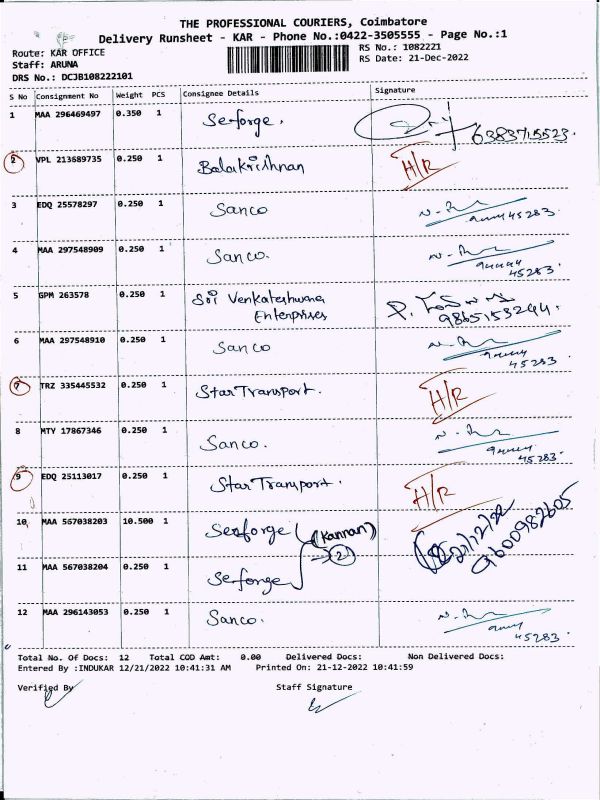 THE PROFESSIONAL COURIERS, Coimbatore
Delivery Runsheet - KAR - Phone No.:0422-3505555 - Page No.:1
Route: KAR OFFICE RS No.: 1082221
Staff: ARUNA RS Date: 21-Dec-2022
DRS No.: DCJB108222101
S No Consignment No Weight PCS Consignee Details Signature
1 MAA 296469497 0.350 1 Seforge. 6383715523.
2 VPL 213689735 0.250 1 Balakrishnan H/R
3 EDQ 25578297 0.250 1 Sanco 45283.
4 MAA 297548909 0.250 1 Sanco. 45283.
5 GPM 263578 0.250 1 Sri Venkateshwara
Enterprises 9865153244.
6 MAA 297548910 0.250 1 Sanco 45283.
7 TRZ 335445532 0.250 1 Star Transport. H/R
8 MTY 17867346 0.250 1 Sanco. 45283.
9 EDQ 25113017 0.250 1 Star Transport. H/R
10 MAA 567038203 10.500 1 Seforge (Kannan) 21/12/22
2
11 MAA 567038204 0.250 1 Seforge
12 MAA 296143053 0.250 1 Sanco. 45283.
Total No. Of Docs: 12 Total COD Amt: 0.00 Delivered Docs: Non Delivered Docs:
Entered By :INDUKAR 12/21/2022 10:41:31 AM Printed On: 21-12-2022 10:41:59
Verified By Staff Signature